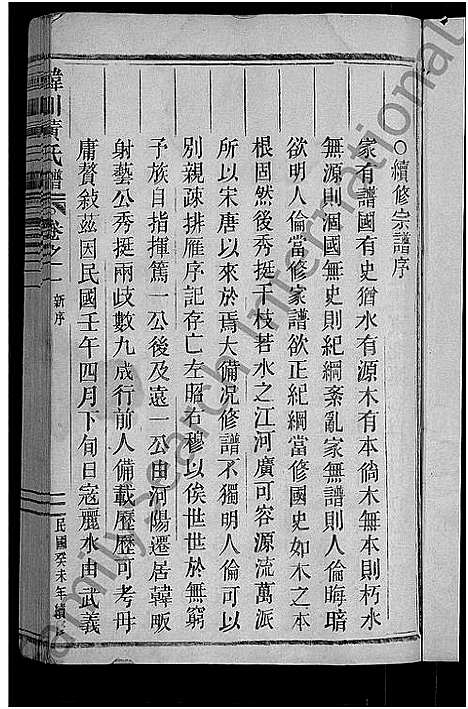 ○續修宗譜序
家有譜國有史猶水有源木有本倘木無本則朽水
無源則涸國無史則紀綱紊亂家無譜則人倫晦暗
欲明人倫當修家譜欲正紀綱當修國史如木之本
根固然後秀挺千枝若水之江河廣可容源流萬派
所以宋唐以來於焉大備況修譜不獨明人倫可以
別親疎排雁序記存亡左昭右穆以俟世世於無窮
予族自指揮篤一公後及遠一公由河陽遷居韓畈
射藝公秀挺兩歧數九成行前人備載歷歷可考毋
庸贅敍茲因民國壬午四月下旬日寇麗水由武義
川黃氏譜
卷之一
新序
民國癸未年續
Family Search International